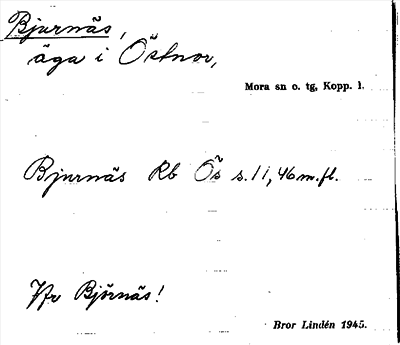 Bjurnäs,
äga i Östnor,
Mora sn o. tg, Kopp. l.
Bjurnäs Rb Ös s. 11, 46 m.fl.
Jfr Björnäs!
Bror Lindén 1945.